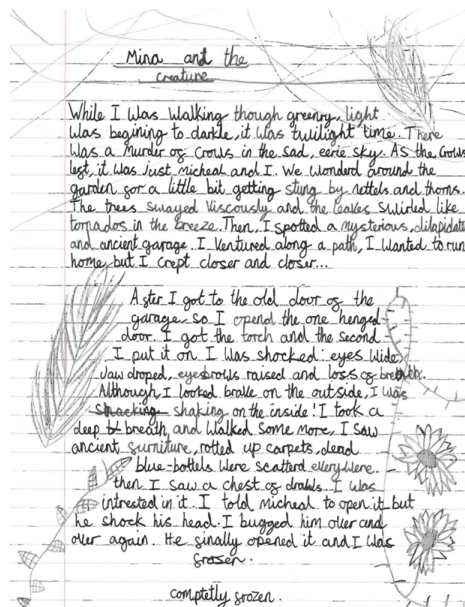 Mina and the
creature
While I was walking though greenry, light
was begining to darkle, it was twilight time. There
was a murder of crows in the sad, eerie sky. As the crows
left, it was just micheal and I. We wonderd around the
garden for a little bit getting stung by nettels and thorns.
The trees swayed viscously and the leaves swirled like
tornados in the breeze. Then, I spotted a mysterious, dilapidate
and ancient garage. I ventured along a path, I wanted to run
home, but I crept closer and closer...
After I got to the old door of the
garage, so I opend the one henged
door. I got the torch and the second
I put it on I was shocked: eyes wide,
Jaw droped, eyebrows raised and loss of breath.
Although I looked brave on the outside, I was
shaking on the inside! I took a
deep breath and walked some more, I saw
ancient furniture, rotted up carpets, dead
blue-bottels were scatterd everywere.
then I saw a chest of drawls. I was
intrested in it. I told micheal to open it but
he shock his head. I bugged him over and
over again. He finally opened it and I was
frozen.
completly frozen.